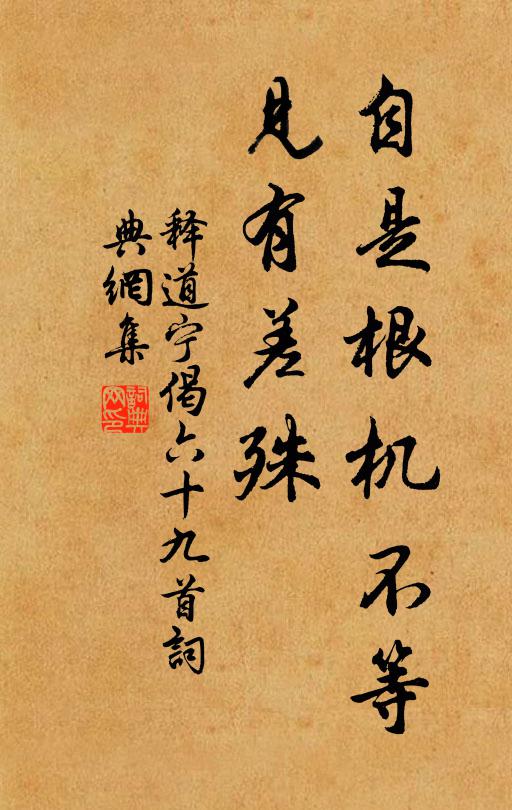 自是根机不等
见有差殊
释道宁偈六十九首詞
典網集
詞典网印